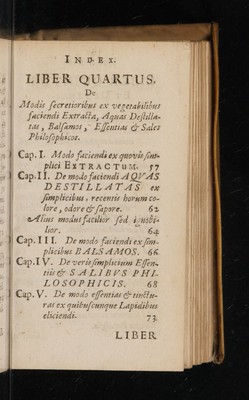 INDEX.
LIBER QUARTUS.
De
Modis secretioribus ex vegetabilibus
faciendi Extracta, Aquas Destilla-
tas, Balsamos, Essentias & Sales
Philosophicos.
Cap. I. Modo faciendi ex quovis sim-
plici EXTRACTUM. 57
Cap. II. De modo faciendi AQVAS
DESTILLATAS ex
simplicibus, recentis horum co-
lore, odore & sapore. 62
Alius modus facilior sed ignobi-
lior. 64
Cap. III. De modo faciendi ex sim-
plicibus BALSAMOS. 66
Cap. IV. De veris simplicium Essen-
tiis & SALIBVS PHI-
LOSOPHICIS. 68
Cap. V. De modo essentias & tinctu-
ras ex quibuscunque Lapidibus
eliciendi. 73
LIBER